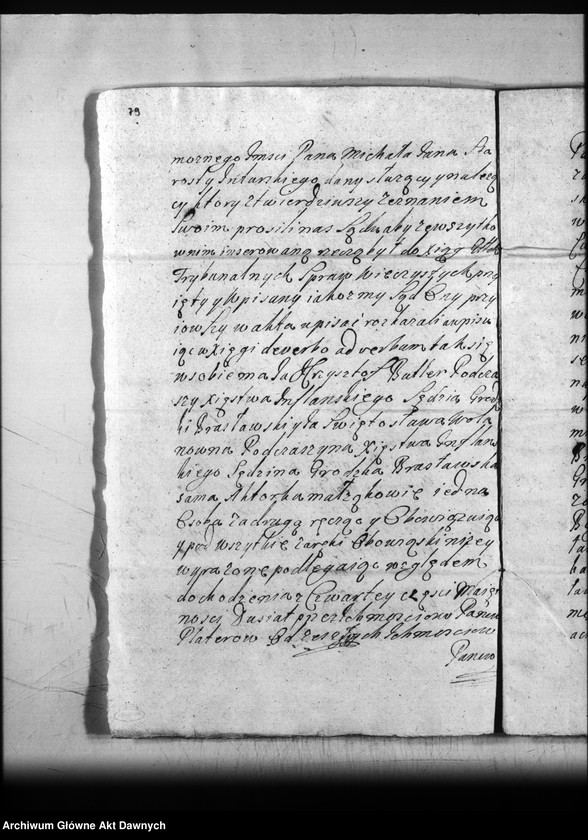 79
mornego Imsci Pana Michała Jana Sta
rosty Inturskiego dany służący y należą
cy ktory ztwierdziwszy zeznaniem
swoim prosili nas Sądu aby ze wszytko
w nim inserowaną rzeczą był do xiąg
Trybunalnych Spraw Wieczystych przy
ięty y wpisany iakoż my Sąd Ony przy
iowszy w akta wpisać rozkazali a wpisu
iąc w xięgi de verbo ad verbum tak się
w sobie ma Ja Krzysztof Butler Podcza
szy Xięstwa Inflanskiego Sędzia Grodz
ki Brasławski y ia Swiętosława Wola
nowna Podczaszyna Xięstwa Inflan
kiego Sędzina Grodzka Brasławska
sama Aktorka małżąkowie iedna
Osoba za drugą ręcząc y Obowięzuiąc
y pod wszytkie zaręki Obowiąski niżey
wyrażone podlegaiąc względem
dochodzenia z Czwartey części Maięt
nosci Dusiat przez Ichmosciow Panow
Platerow Od Ichmosciow
Panow
Archiwum Główne Akt Dawnych